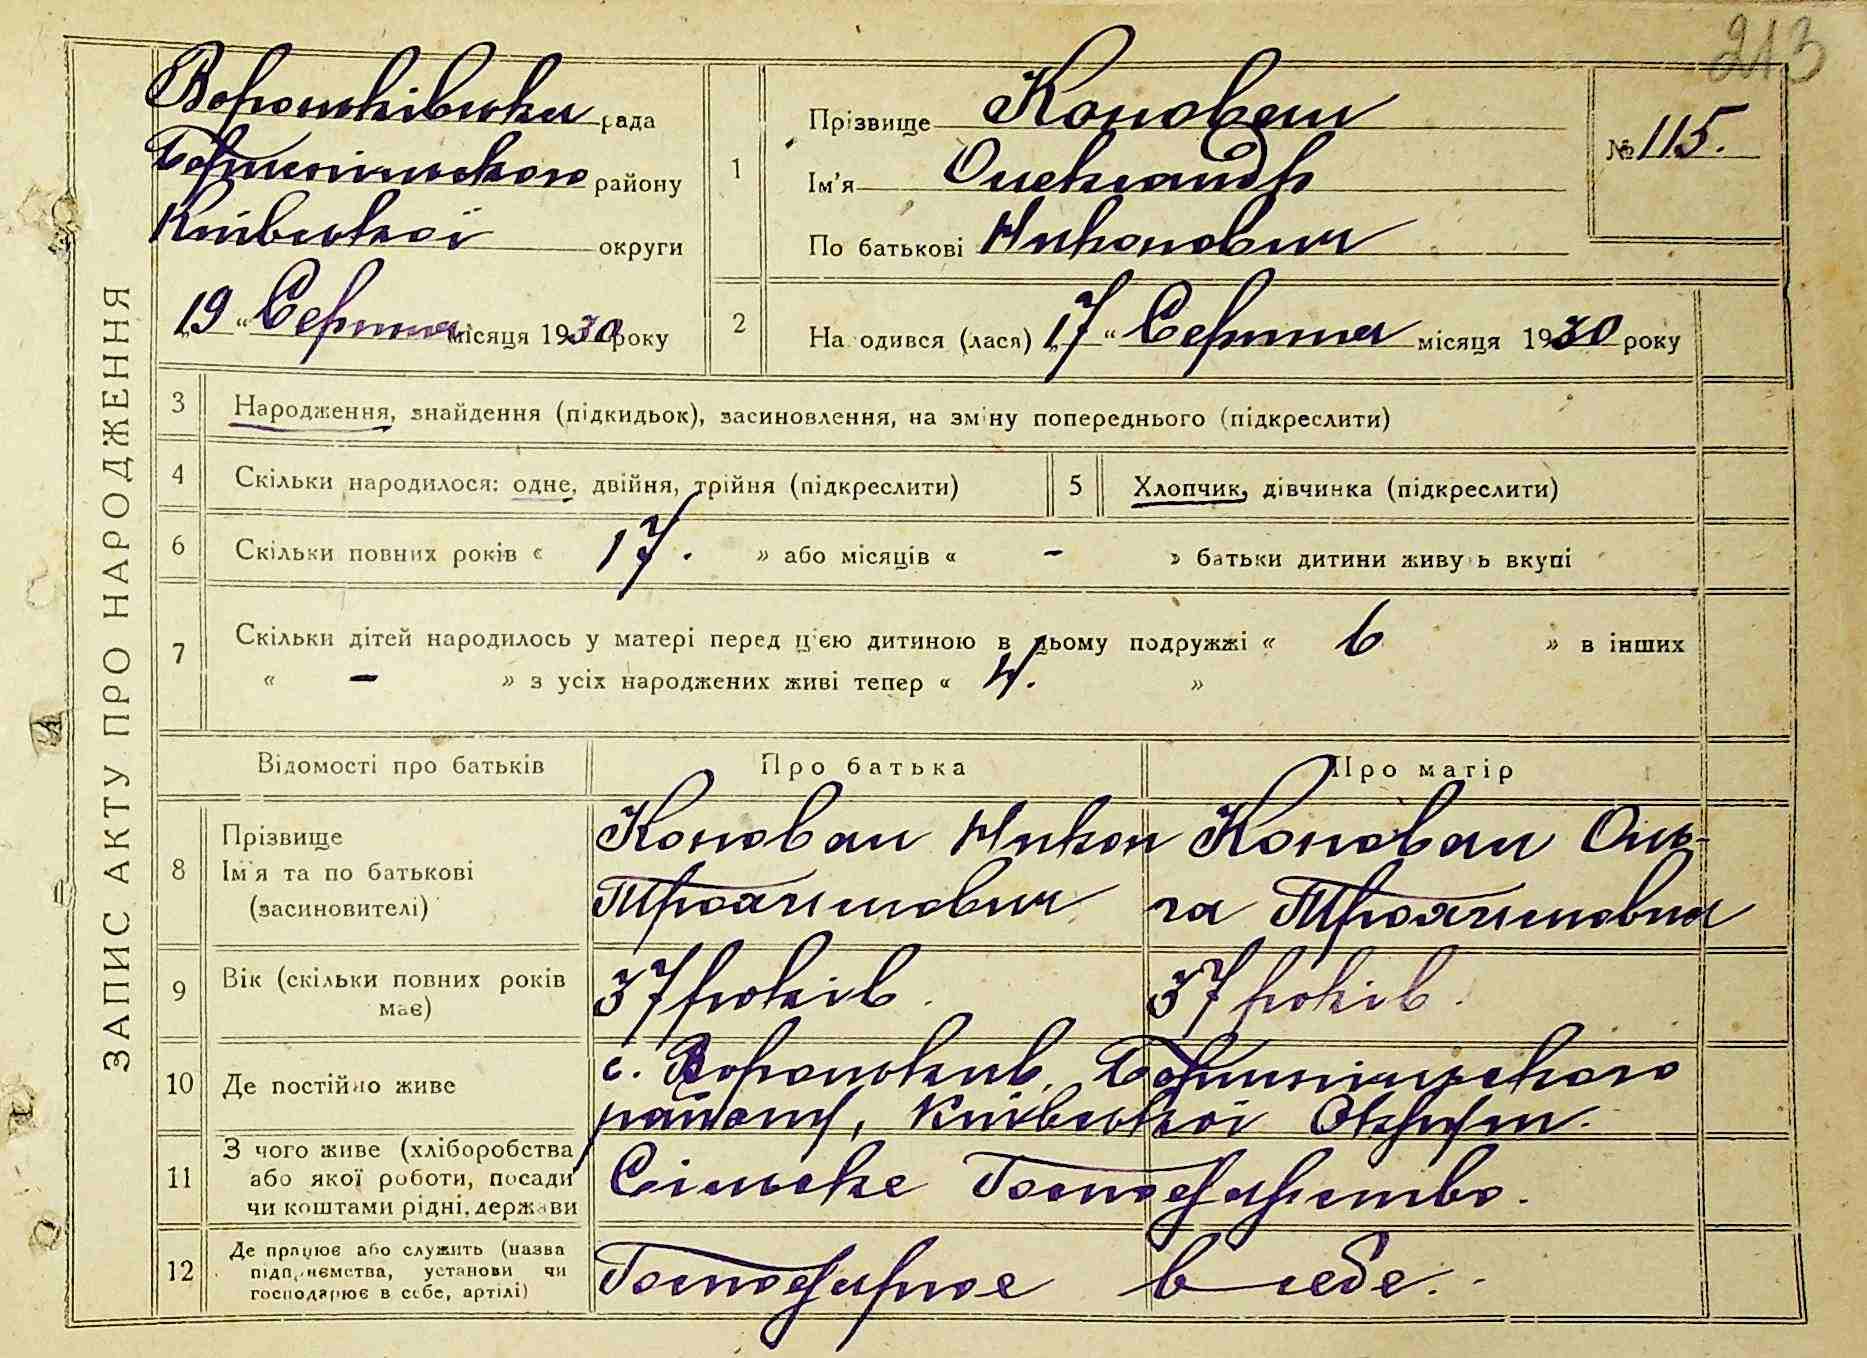 213
ЗАПИС АКТУ ПРО НАРОДЖЕННЯ
Вороньківська рада
Бориспільського району
Київської округи
„19“ Серпня місяця 1930 року
1
Прізвище Коновал
Ім'я Олександр
По батькові Никонович
№ 115.
2
На одився (лася) „17“ Серпня місяця 1930 року
3 Народження, знайдення (підкидьок), засиновлення, на зміну попереднього (підкреслити)
4 Скільки народилося: одне, двійня, трійня (підкреслити)
5 Хлопчик, дівчинка (підкреслити)
6 Скільки повних років « 17. » або місяців « - » батьки дитини живу ь вкупі
7 Скільки дітей народилось у матері перед ц'єю дитиною в цьому подружжі « 6 » в інших
« - » з усіх народжених живі тепер « 4. »
Відомості про батьків Про батька Про матір
8 Прізвище
Ім'я та по батькові
(засиновителі)
Коновал Никон
Трохимович
Коновал Оль-
га Трохимовна
9 Вік (скільки повних років
має)
37 років.
37 років.
10 Де постійно живе
с. Вороньків, Бориспільського
району, Київської Округи.
11 З чого живе (хліборобства
або якої роботи, посади
чи коштами рідні, держави
Сільське Господарство.
12 Де працює або служить (назва
підприємства, установи чи
господарює в себе, артілі)
Господарює в себе.